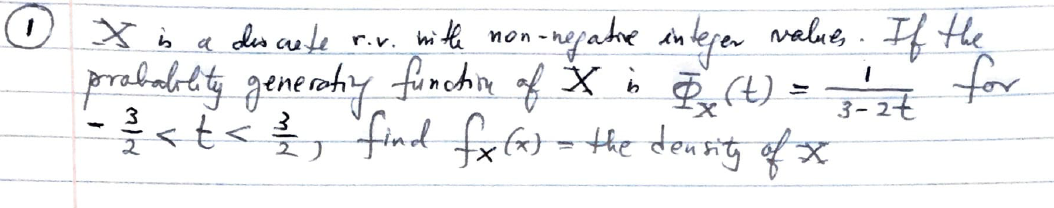 ① X is a discrete r.v. with non-negative integer values. If the
probability generating function of X is Φ_X(t) = 1/(3-2t) for
-3/2 < t < 3/2, find f_X(x) = the density of X